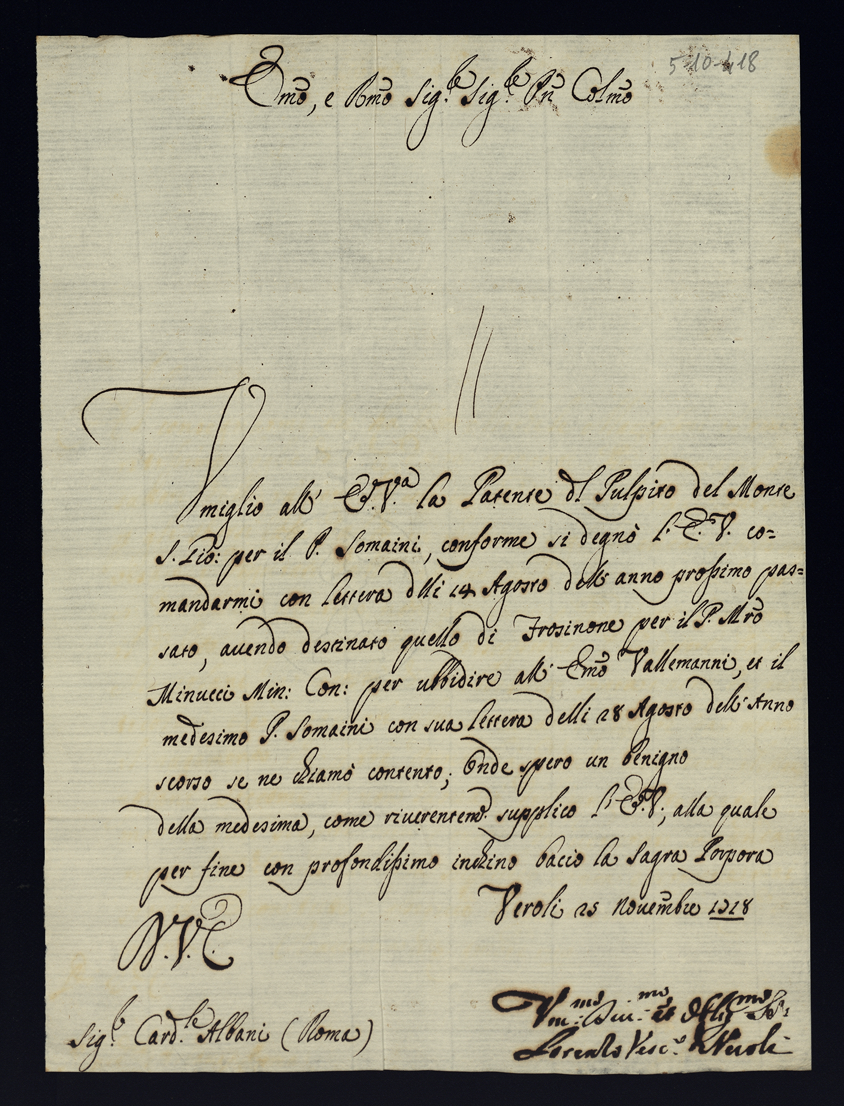 5-10-418
Emo, e Rmo Sig.re Sig.re Pñ Colmo
Umiglio all' E. V.a la Patente dl Pulpito del Monte
S. Gio: per il P. Somaini, conforme si degnò l'E. V. co=
mandarmi con lettera dlli 14 Agosto dell' anno prossimo pas=
sato, avendo destinato quello di Frosinone per il P. Mro
Minucci Min: Con: per ubbidire all' Emo Vallemanni, et il
medesimo P. Somaini con sua lettera delli 28 Agosto dell' Anno
scorso se ne chiamò contento; Onde spero un benigno
della medesima, come riverentemte supplico l'E. V., alla quale
per fine con profondissimo inchino bacio la Sagra Porpora
Veroli 25 Novembre 1718
D. V. E.
Sig.r Card.le Albani (Roma)
Vm.mo Div.mo et Oblig.mo Se.
Lorenzo Vesc.o di Veroli